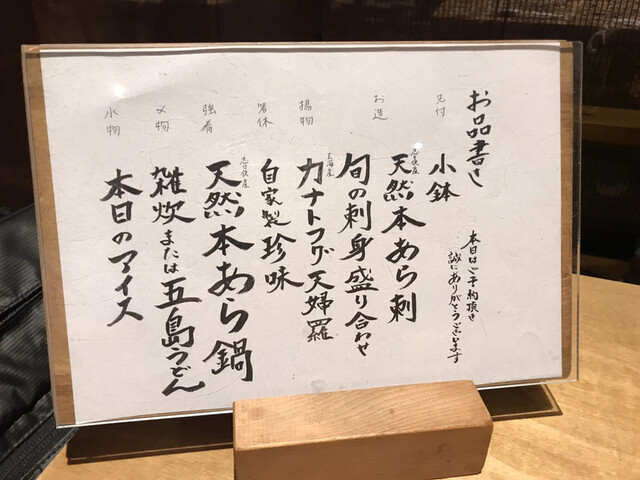 お品書き
本日はご予約頂き
誠にありがとうございます
先付
小鉢
お造
志々伎産
天然本あら刺
旬の刺身盛り合わせ
揚物
玄海産
カナトフグ天婦羅
箸休
自家製珍味
強肴
志々伎産
天然本あら鍋
〆物
雑炊または五島うどん
水物
本日のアイス